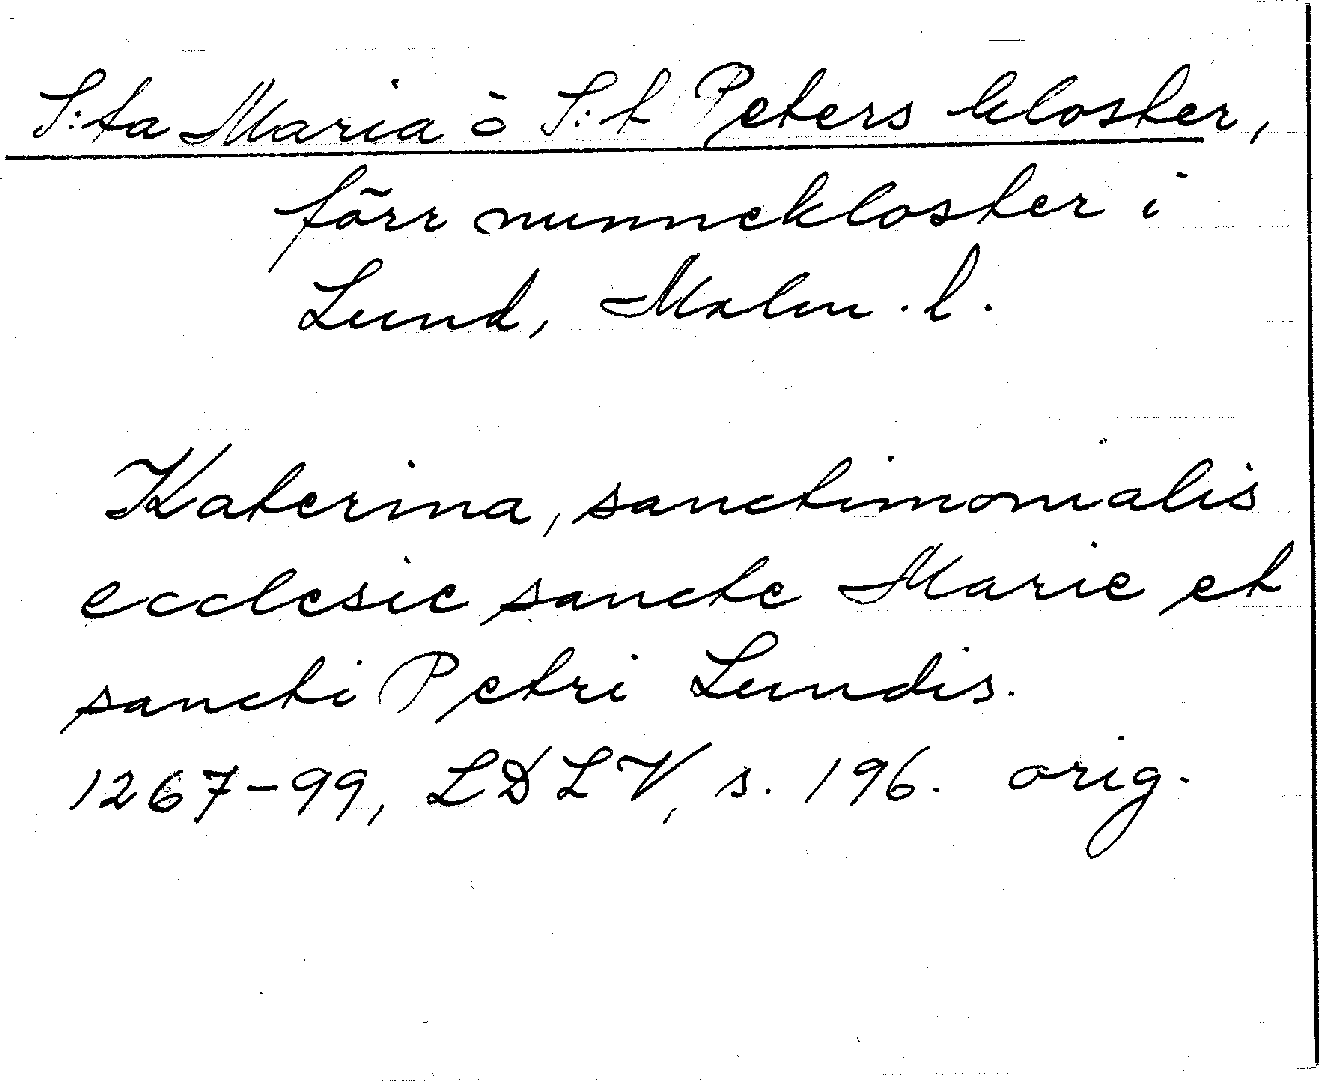 S:ta Maria o S:t Peters kloster,
förr nunnekloster i
Lund, Malm. l.
Katerina, sanctimonialis
ecclesie sancte Marie et
sancti Petri Lundis.
1267-99, LDLV, s. 196. orig.